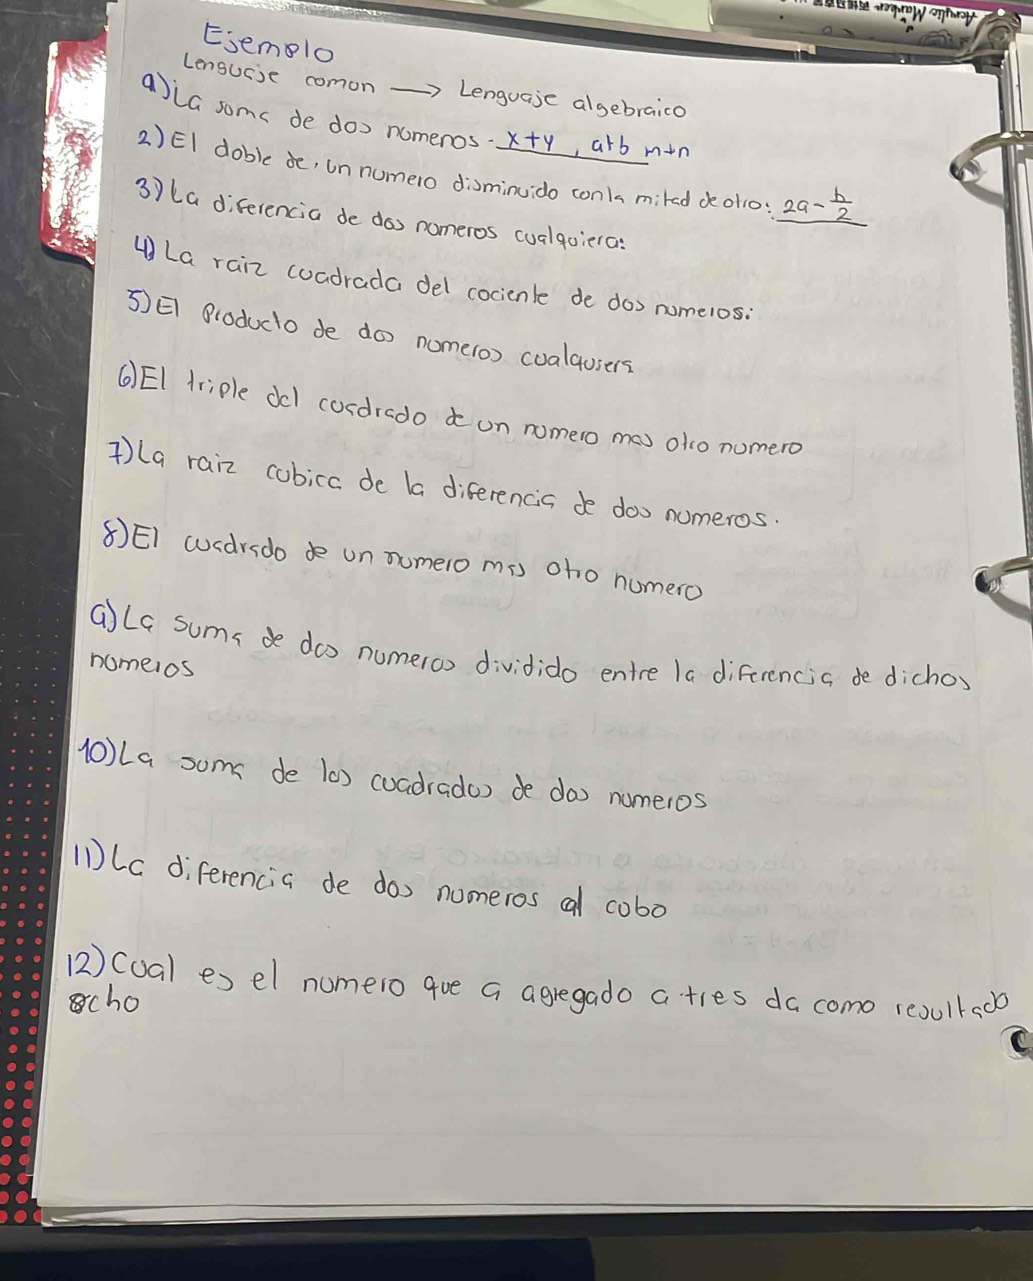 Acrylic Marker
Ejemplo
Lenguaje comon → Lenguaje algebraico
a) La soma de dos nomeros. x+y, a+b m+n
2) El doble de, un numero disminuido con la mitad de otro: 2a - b/2
3) La diferencia de dos nomeros cualquiera:
4) La raiz cuadrada del cociente de dos numeros:
5) El producto de dos nomeros cualquiera
6) El triple del cuadrado de un numero mas otro numero
7) La raiz cubica de la diferencia de dos numeros.
8) El cuadrado de un numero mas otro numero
9) La suma de dos numeros dividido entre la diferencia de dichos
nomeros
10) La soma de los cuadrados de dos numeros
11) La diferencia de dos numeros al cobo
12) Cual es el numero que a agregado a tres da como resultado
ocho